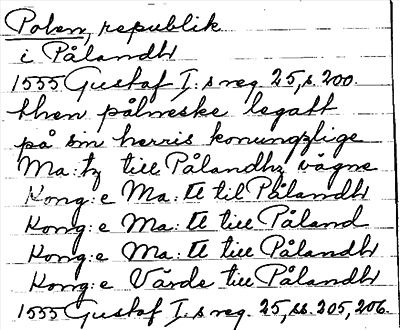 Polen, republik
i Pålandh
1555 Gustaf I:s reg. 25, s. 200.
then pålneske legatt
på sin herris konungzlige
Ma:tz till Pålandhz vägne
Kong:e Ma:tt til Pålandh
Kong:e Ma:tt till Påland
Kong:e Ma:tt till Pålandh
Kong:e Värde till Pålandh
1555 Gustaf I:s reg. 25, ss. 205, 206.